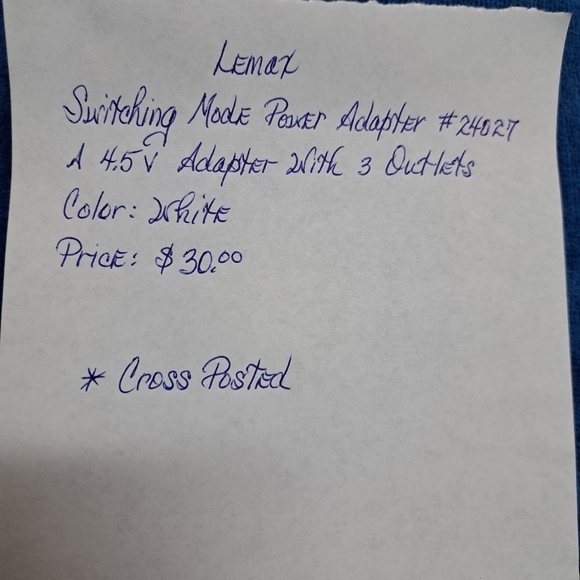 Lemax
Switching Mode Power Adapter #24027
A 4.5V Adapter With 3 Outlets
Color: White
Price: $30.00
* Cross Posted